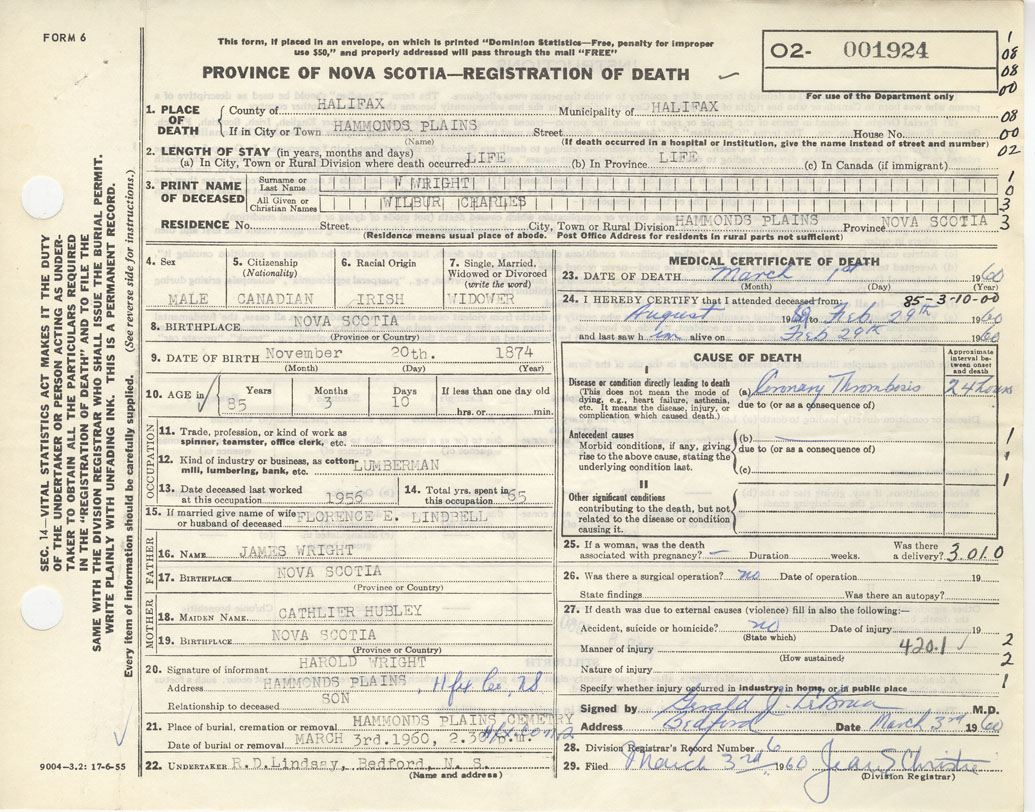 FORM 6
This form, if placed in an envelope, on which is printed "Dominion Statistics—Free, penalty for improper
use $50," and properly addressed will pass through the mail "FREE"
PROVINCE OF NOVA SCOTIA—REGISTRATION OF DEATH
O2- 001924
For use of the Department only
1
08
08
00
08
00
02
1
0
3
3
1. PLACE OF DEATH
County of HALIFAX Municipality of HALIFAX
If in City or Town HAMMONDS PLAINS Street House No.
(Name) (If death occurred in a hospital or institution, give the name instead of street and number)
2. LENGTH OF STAY (in years, months and days)
(a) In City, Town or Rural Division where death occurred LIFE (b) In Province LIFE (c) In Canada (if immigrant)
3. PRINT NAME OF DECEASED
Surname or Last Name W WRIGHT
All Given or Christian Names WILBUR CHARLES
RESIDENCE No. Street City, Town or Rural Division HAMMONDS PLAINS Province NOVA SCOTIA
(Residence means usual place of abode. Post Office Address for residents in rural parts not sufficient)
4. Sex
MALE
5. Citizenship
(Nationality)
CANADIAN
6. Racial Origin
IRISH
7. Single, Married,
Widowed or Divorced
(write the word)
WIDOWER
8. BIRTHPLACE NOVA SCOTIA
(Province or Country)
9. DATE OF BIRTH November 20th. 1874
(Month) (Day) (Year)
10. AGE in Years Months Days If less than one day old
85 3 10 hrs. or min.
OCCUPATION
11. Trade, profession, or kind of work as
spinner, teamster, office clerk, etc.
12. Kind of industry or business, as cotton-
mill, lumbering, bank, etc. LUMBERMAN
13. Date deceased last worked
at this occupation 1956
14. Total yrs. spent in
this occupation 65
15. If married give name of wife
or husband of deceased FLORENCE E. LINDBELL
FATHER
16. NAME JAMES WRIGHT
17. BIRTHPLACE NOVA SCOTIA
(Province or Country)
MOTHER
18. MAIDEN NAME CATHLIER HUBLEY
19. BIRTHPLACE NOVA SCOTIA
(Province or Country)
20. Signature of informant HAROLD WRIGHT
Address HAMMONDS PLAINS, Hfx Co, NS
Relationship to deceased SON
21. Place of burial, cremation or removal HAMMONDS PLAINS CEMETRY
Date of burial or removal MARCH 3rd.1960, 2.30
22. UNDERTAKER R.D.Lindsay, Bedford, N. S.
(Name and address)
MEDICAL CERTIFICATE OF DEATH
23. DATE OF DEATH March 1st 1960
(Month) (Day) (Year)
24. I HEREBY CERTIFY that I attended deceased from: 85-3-10-00
August 19 to Feb 29th 1960
and last saw him alive on Feb 29th 1960
CAUSE OF DEATH
Approximate interval between onset and death
I
Disease or condition directly leading to death
(This does not mean the mode of
dying, e.g., heart failure, asthenia,
etc. It means the disease, injury, or
complication which caused death.)
(a) Coronary Thrombosis 24 hours
due to (or as a consequence of)
Antecedent causes
Morbid conditions, if any, giving
rise to the above cause, stating the
underlying condition last.
(b)
due to (or as a consequence of)
(c)
II
Other significant conditions
contributing to the death, but not
related to the disease or condition
causing it.
1
1
1
25. If a woman, was the death Was there
associated with pregnancy? – Duration weeks. a delivery? 3.010
26. Was there a surgical operation? no Date of operation 19
State findings Was there an autopsy?
27. If death was due to external causes (violence) fill in also the following:—
Accident, suicide or homicide? no Date of injury 19
(State which)
Manner of injury 420.1
(How sustained)
Nature of injury
2
2
1
Specify whether injury occurred in industry, in home, or in public place
Signed by Gerald J. LeBrun M.D.
Address Bedford Date March 3rd 1960
28. Division Registrar's Record Number 6
29. Filed March 3rd 1960 Jean S Christie
(Division Registrar)
SEC. 14—VITAL STATISTICS ACT MAKES IT THE DUTY
OF THE UNDERTAKER OR PERSON ACTING AS UNDER-
TAKER TO OBTAIN ALL THE PARTICULARS REQUIRED
IN THE "REGISTRATION OF DEATH" AND TO FILE THE
SAME WITH THE DIVISION REGISTRAR WHO SHALL ISSUE THE BURIAL PERMIT.
WRITE PLAINLY WITH UNFADING INK. THIS IS A PERMANENT RECORD.
Every item of information should be carefully supplied. (See reverse side for instructions.)
9004-3.2: 17-6-55